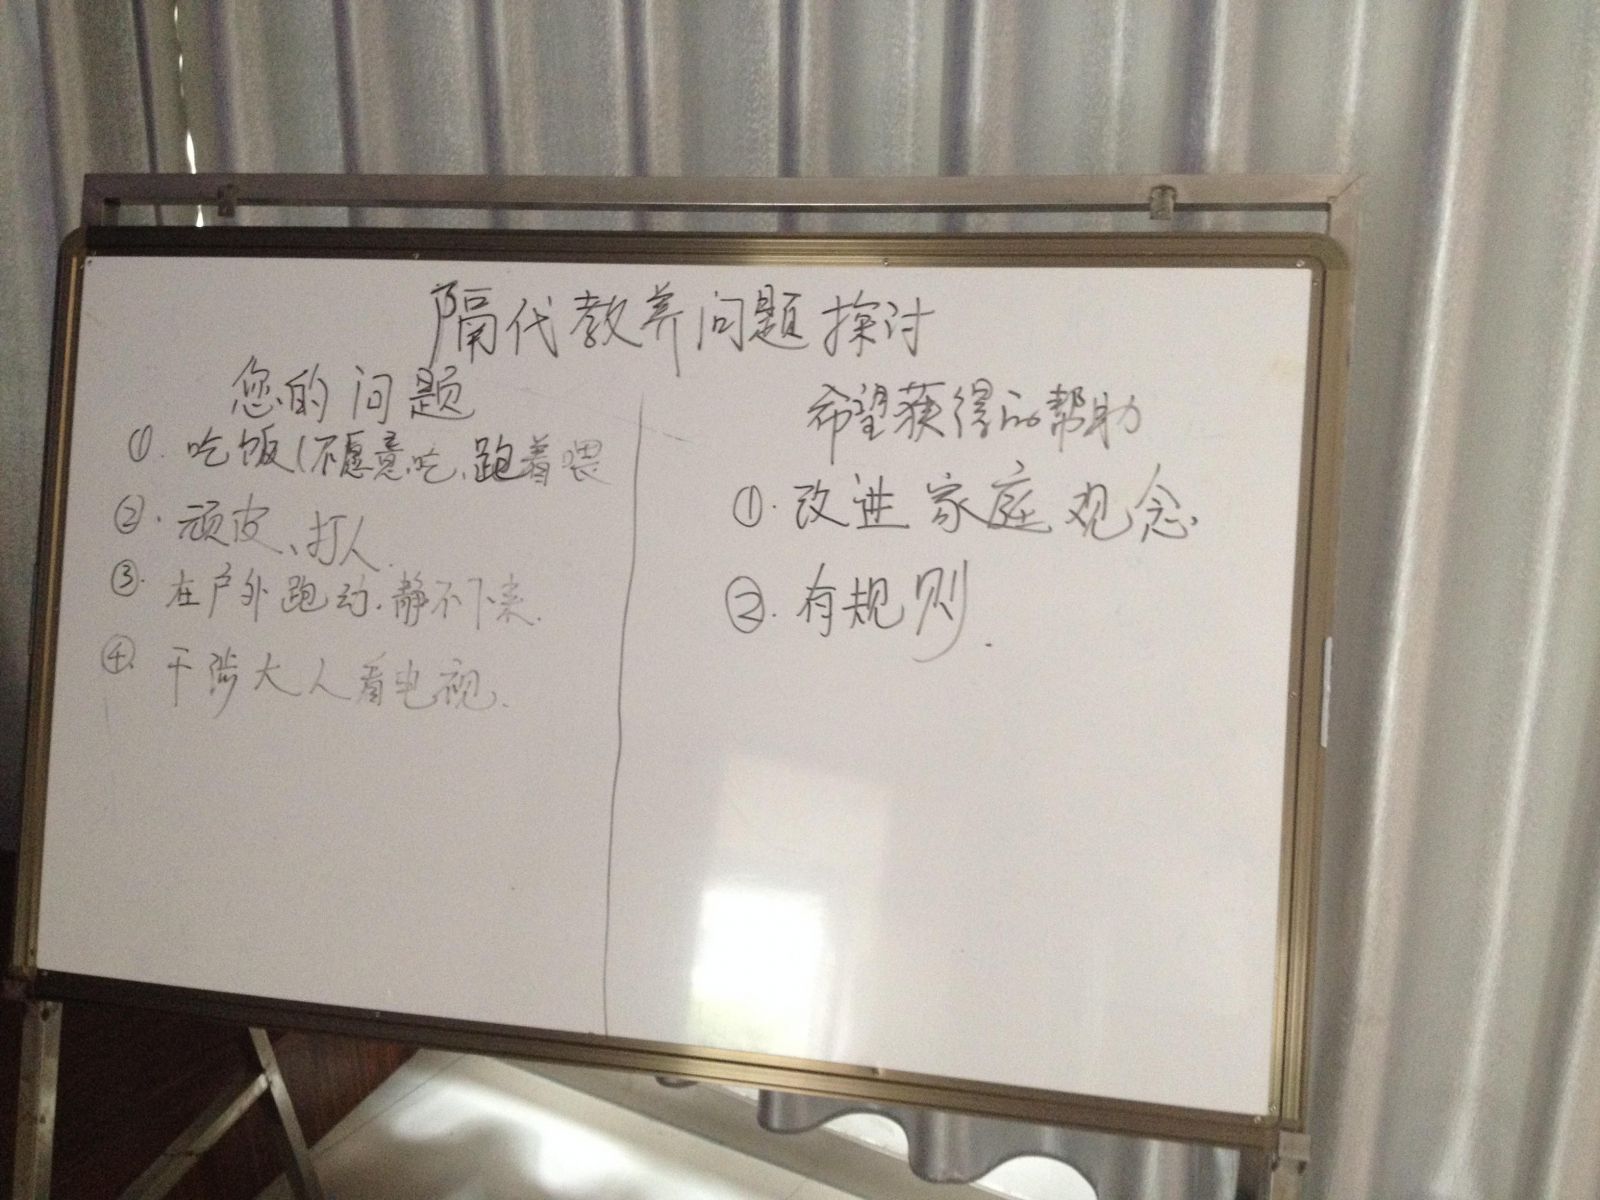 隔代教养问题探讨
您的问题
①. 吃饭(不愿意吃、跑着喂
②. 顽皮、打人.
③. 在户外跑动.静不下来.
④. 干涉大人看电视.
希望获得的帮助
①. 改进家庭观念.
②. 有规则.